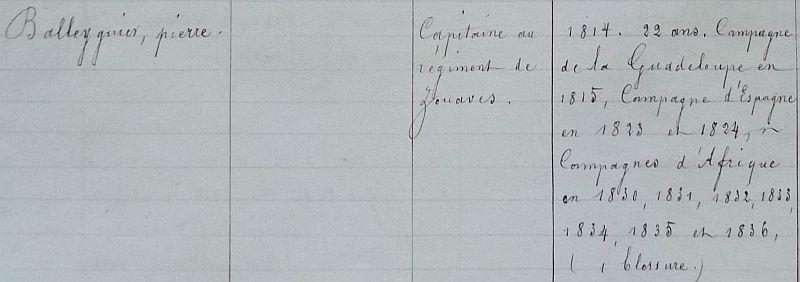 Balleyguier, pierre.
Capitaine au
régiment de
Zouaves.
1814. 22 ans. Campagne
de la Guadeloupe en
1815, Campagne d'Espagne
en 1823 et 1824,
Campagnes d'Afrique
en 1830, 1831, 1832, 1833,
1834, 1835 et 1836,
( 1 blessure.)